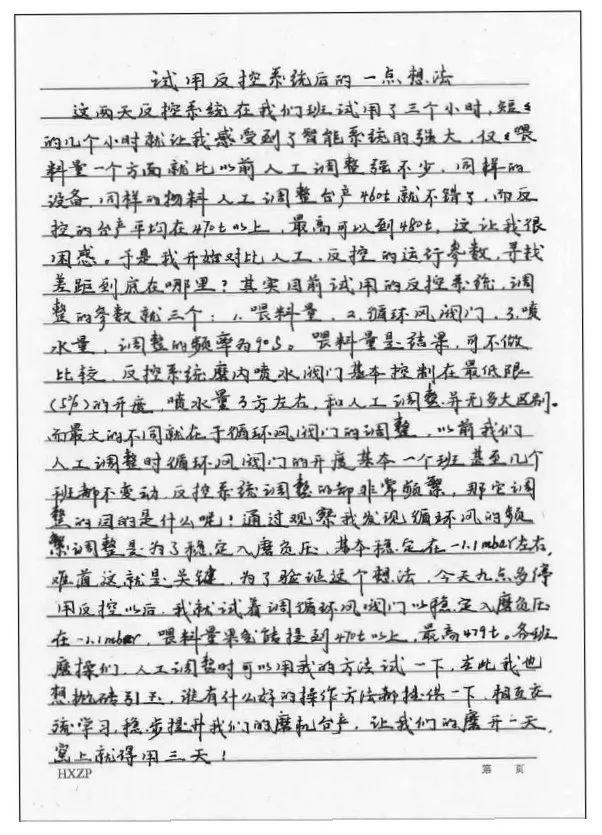 试用反控系统后的一点想法
这两天反控系统在我们班试用了三个小时,短短
的几个小时就让我感受到了智能系统的强大,仅仅喂
料量一个方面就比以前人工调整强不少,同样的
设备,同样的物料人工调整台产460t就不错了,而反
控的台产平均在470t以上,最高可以到480t,这让我很
困惑。于是我开始对比人工、反控的运行参数,寻找
差距到底在哪里?其实目前试用的反控系统,调
整的参数就三个:1.喂料量,2.循环风阀门,3.喷
水量,调整的频率为90S。喂料量是结果,可不做
比较,反控系统磨内喷水阀门基本控制在最低限
(5%)的开度,喷水量3方左右,和人工调整并无多大区别。
而最大的不同就在于循环风阀门的调整,以前我们
人工调整时循环风阀门的开度基本一个班甚至几个
班都不变动,反控系统调整的却非常频繁,那它调
整的目的是什么呢?通过观察我发现循环风的频
繁调整是为了稳定入磨负压,基本稳定在-1.1mbar左右,
难道这就是关键,为了验证这个想法,今天九点多停
用反控以后,我就试着调循环风阀门以稳定入磨负压
在-1.1mbar,喂料量果真能提到470t以上,最高479t。各班
磨操们,人工调整时可以用我的方法试一下,在此我也
想抛砖引玉,谁有什么好的操作方法都提供一下,相互交
流学习,稳步提升我们的磨机台产,让我们的磨开一天,
窑上就得用三天!
HXZP 第 页